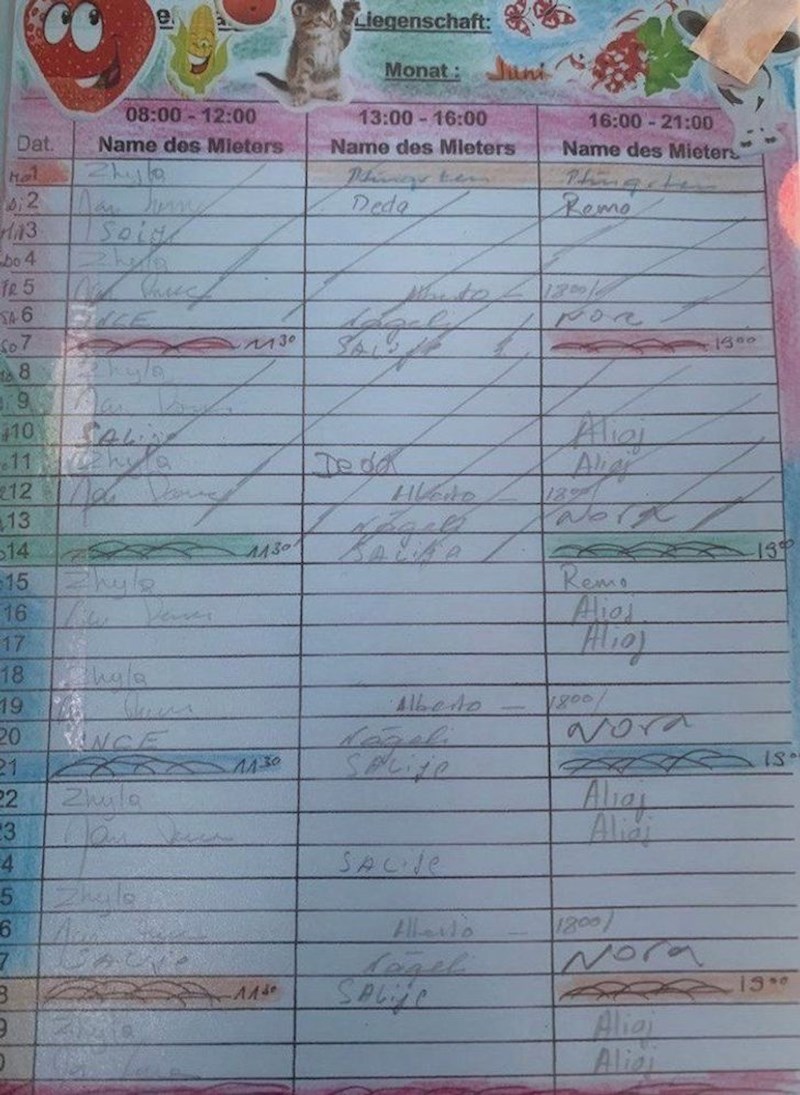 Liegenschaft:
Monat : Juni
08:00 - 12:00 13:00 - 16:00 16:00 - 21:00
Dat. Name des Mieters Name des Mieters Name des Mieters
Mo 1 Zhyla Pfingsten Pfingsten
Di 2 Deda Remo
3 Salije
Do 4 Zhyla
FR 5 Alberto — 1800/
SA 6 INCE Nägeli Nora
So 7 11 30 SALije 19 00
8 Zhyla
9
10 SALije Aliaj
11 Zhyla Deda Aliaj
12 Alberto — 1800/
13 Nägeli Nora
14 11 30 SALije 19 00
15 Zhyla Remo
16 Aliaj
17 Aliaj
18 Zhyla
19 Alberto — 1800/
20 INCE Nägeli Nora
21 11 30 SALije
22 Zhyla Aliaj
23 Aliaj
4 SALije
5 Zhyla
6 Alberto — 1800/
7 SALije Nägeli Nora
8 11 30 SALije 19 00
9 Zhyla Aliaj
0 Aliaj